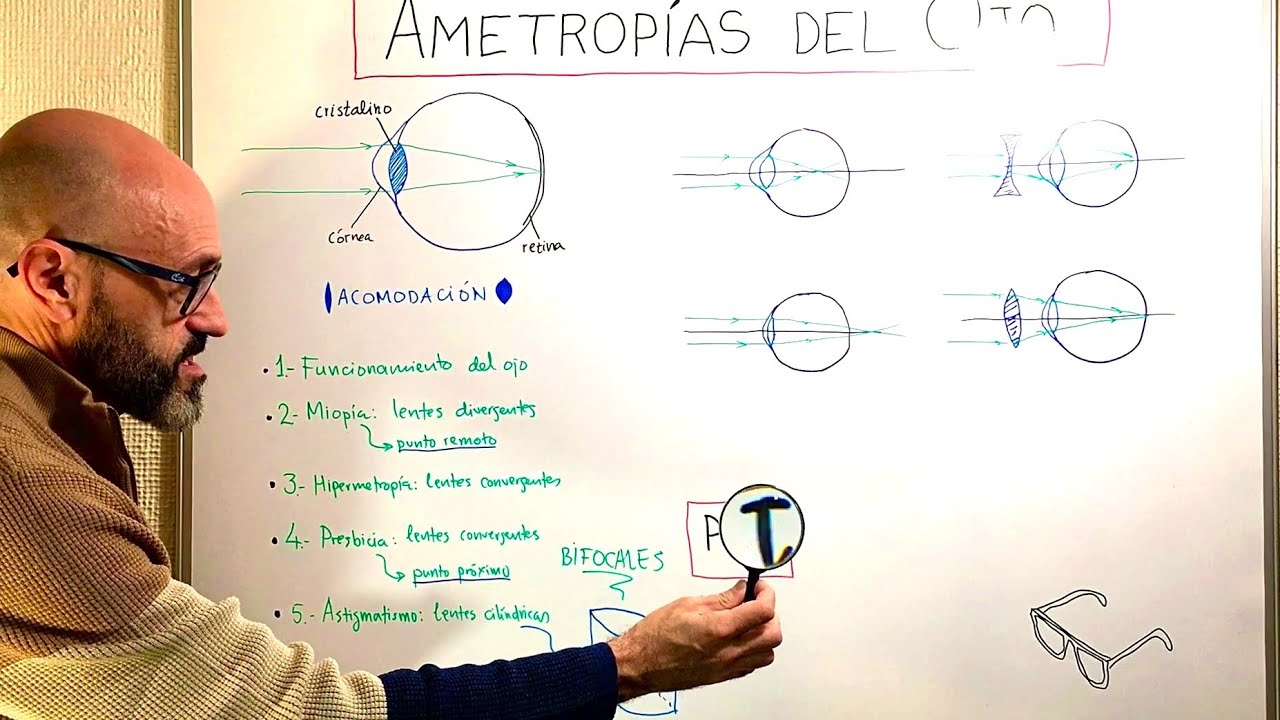 AMETROPÍAS DEL
cristalino
córnea
retina
ACOMODACIÓN
• 1.- Funcionamiento del ojo
• 2.- Miopía: lentes divergentes
punto remoto
• 3.- Hipermetropía: lentes convergentes
• 4.- Presbicia: lentes convergentes
punto próximo
• 5.- Astigmatismo: lentes cilíndricas
BIFOCALES
P T